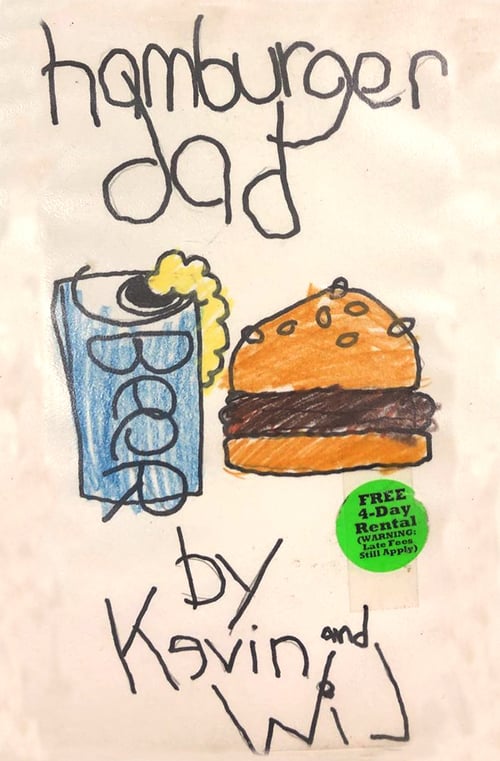 hamburger
dad
BeeR
FREE
4-Day
Rental
(WARNING:
Late Fees
Still Apply)
by
Kevin and
Wil